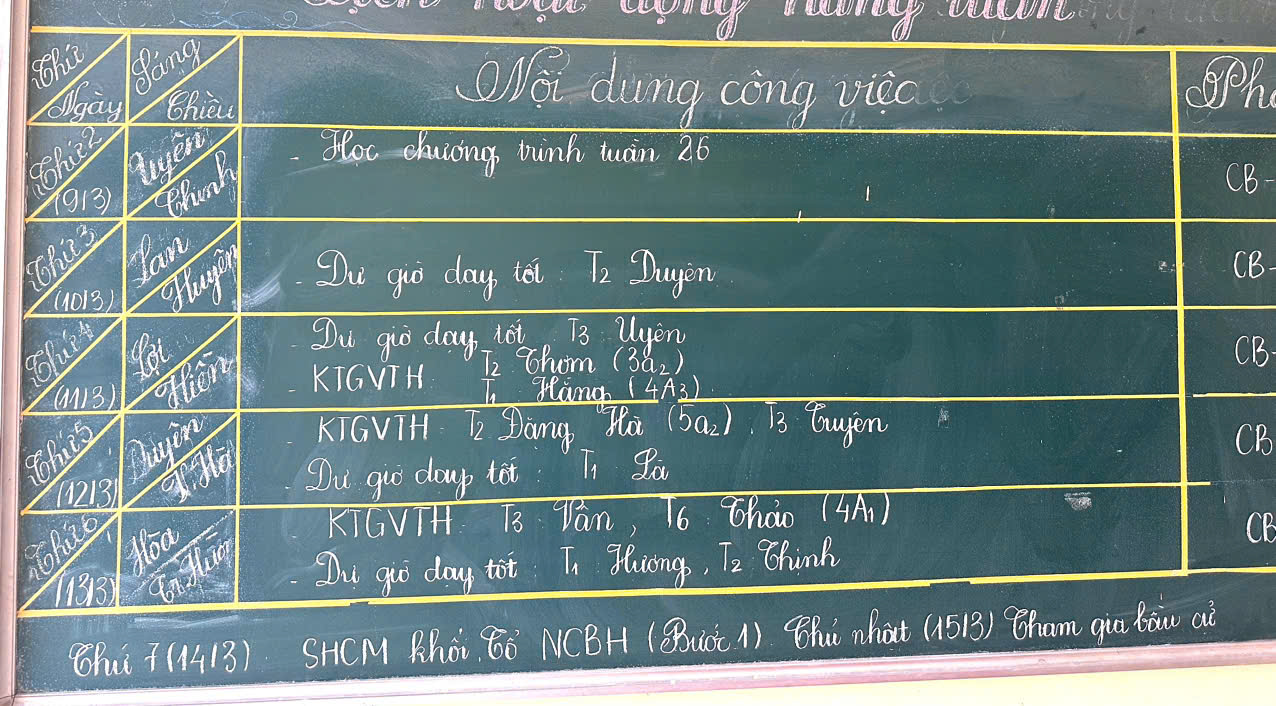 hoạt động hàng tuần
Thứ Ngày Sáng Chiều Nội dung công việc
Thứ 2 (9/3) Uyên Thịnh - Học chương trình tuần 26 CB-
Thứ 3 (10/3) Lan Huyên - Dự giờ dạy tốt: T2 Duyên CB-
Thứ 4 (11/3) Lợi Hiền - Dự giờ dạy tốt T3 Uyên CB-
- KTGVTH: T2 Thơm (3a2)
T1 Hằng (4A3)
Thứ 5 (12/3) Duyên P.Hà - KTGVTH: T2 Đặng Hà (5a2), T3 Truyên CB
- Dự giờ dạy tốt: T1 Là
Thứ 6 (13/3) Hòa - KTGVTH: T3 Vân, T6 Thảo (4A1) CB
- Dự giờ dạy tốt: T1 Hương, T2 Thịnh
Thứ 7 (14/3) SHCM Khối, Tổ NCBH (Bước 1) Chủ nhật (15/3) Tham gia bầu cử